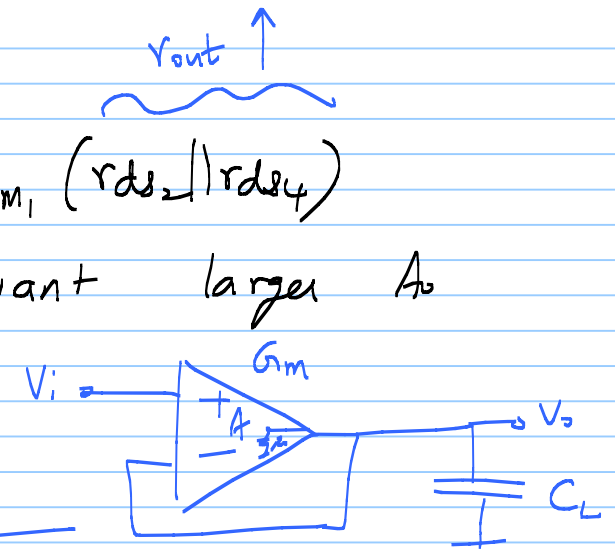 rout ↑
m₁ (rds₂||rds₄)
ant larger A₀
Gm
Vi
+
A
−
Vo
CL